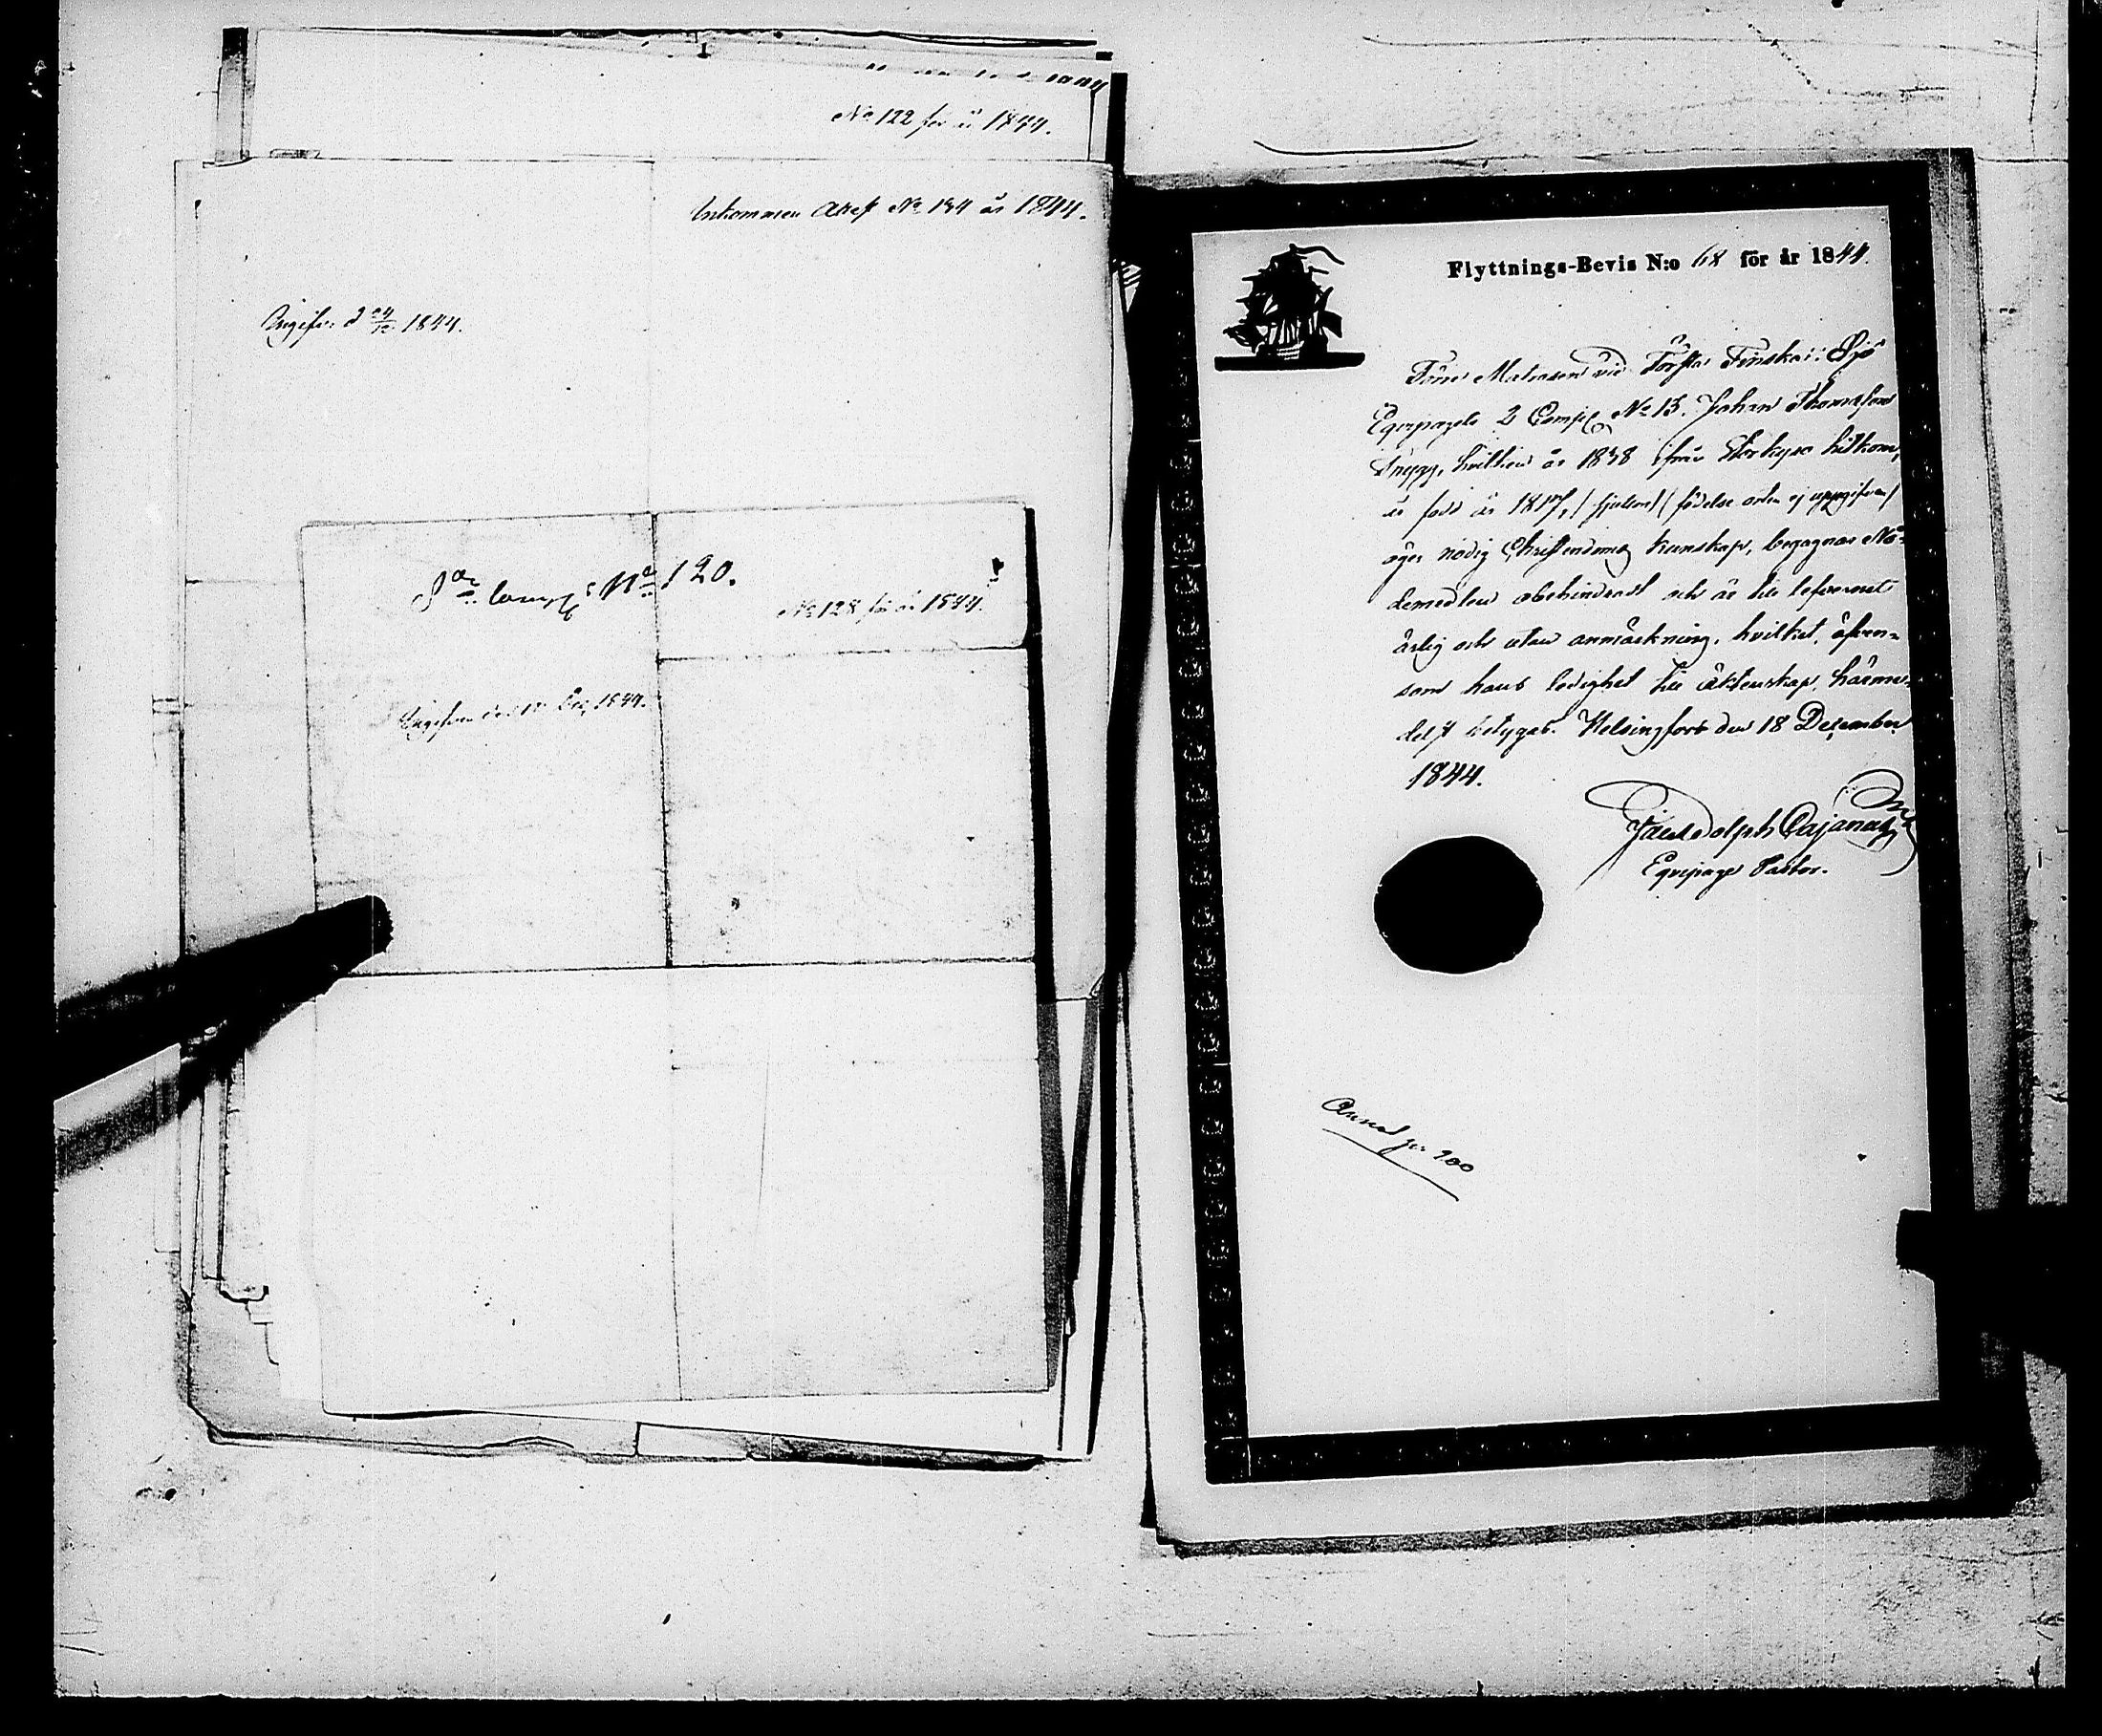 No 122 för år 1844.
Inkommen attest No 134 år 1844.
Angifven d 24/12 1844.
8de comp. No 120.
No 128 för år 1844.
Angifven den Dec, 1844.
Flyttnings-Bevis N:o 68 för år 1844.
Förre Matrosen vid Första Finska Sjö
Equipagets 2 Comp. No 13. Johan Thomasson
Snygg, hvilken år 1838 ifrån Storkyro hitkom,
är född år 1817, (sjutton) (födelse orten ej uppgifven)
äger nödig Christendoms kunskap, begagnar Nå-
demedlen obehindradt och är till lefvernet
ärlig och utan anmärkning, hvilket, äfven-
som hans ledighet till äktenskap, härme-
delst betygas. Helsingfors den 18 December
1844.
Cajanus
Equipage Pastor.
Annot